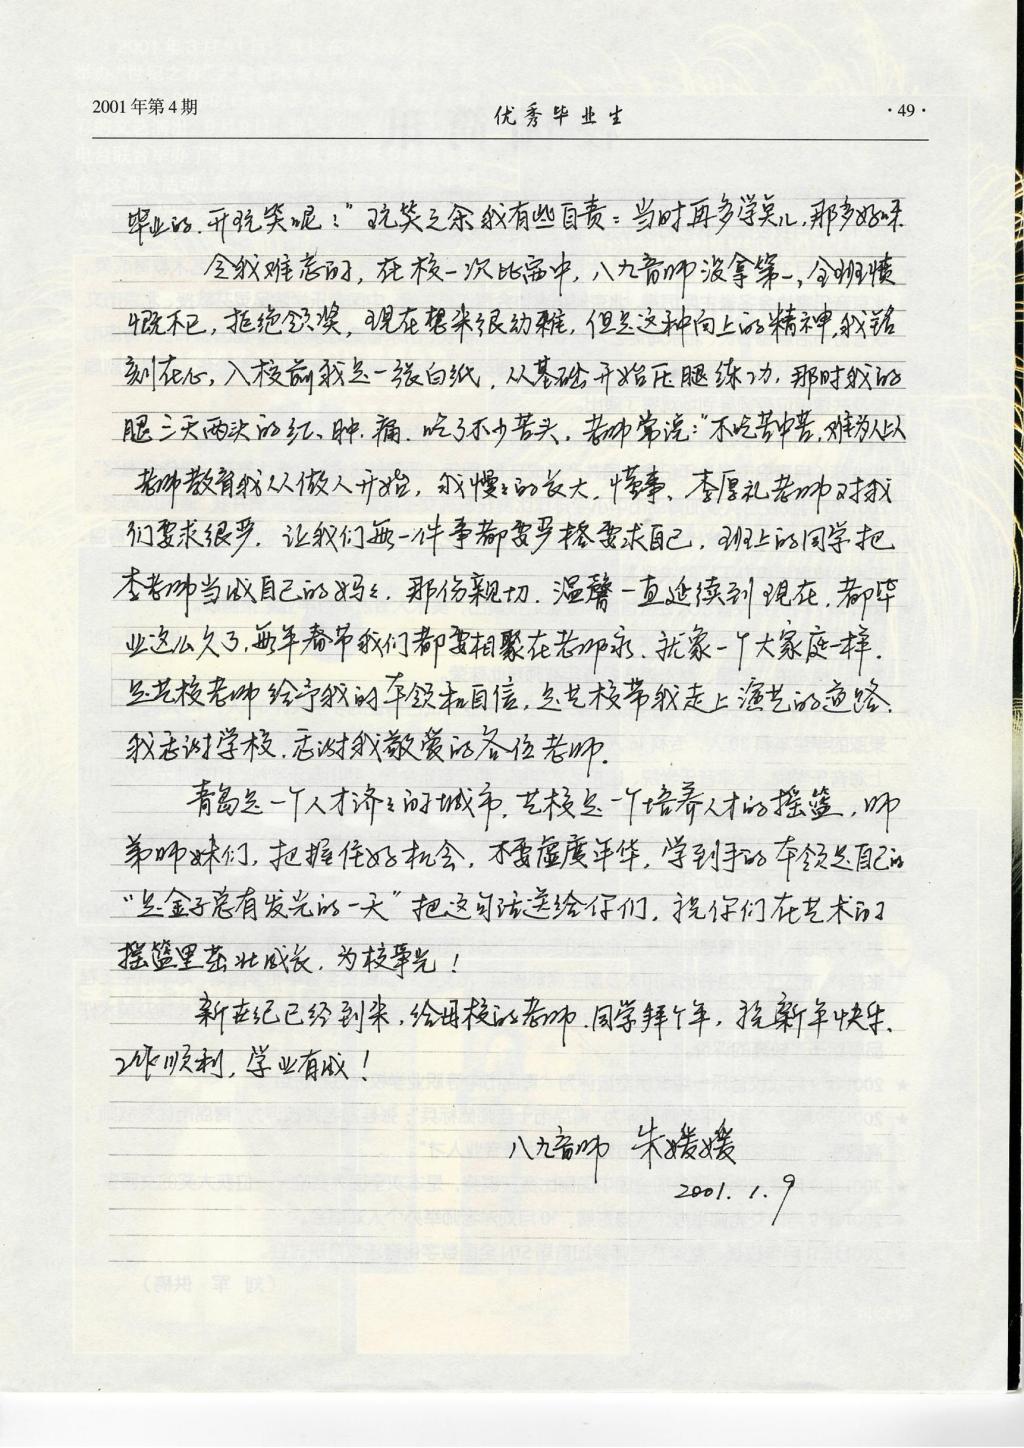 2001年第4期
优秀毕业生
·49·
毕业的、开玩笑呢！”玩笑之余我有些自责：当时再多学点儿，那多好呀
令我难忘的，在校一次比赛中，八九音师没拿第一，全班愤
慨不已，拒绝领奖，现在想来很幼稚，但是这种向上的精神，我铭
刻在心，入校前我是一张白纸，从基础开始压腿练功，那时我的
腿三天两头的红、肿、痛、吃了不少苦头，老师常说：“不吃苦中苦，难为人上人
老师教育我从做人开始，我慢慢的长大，懂事、李厚礼老师对我
们要求很严，让我们每一件事都要严格要求自己，班上的同学把
李老师当成自己的妈妈，那份亲切、温馨一直延续到现在，都毕
业这么久了，每年春节我们都要相聚在老师家、就象一个大家庭一样，
是艺校老师给予我的本领和自信，是艺校带我走上演艺的道路、
我感谢学校、感谢我敬爱的各位老师。
青岛是一个人才济济的城市，艺校是一个培养人才的摇篮，师
弟师妹们，把握住好机会，不要虚度年华，学到手的本领是自己的
“是金子总有发光的一天”把这句话送给你们，祝你们在艺术的
摇篮里茁壮成长，为校争光！
新世纪已经到来，给母校的老师、同学拜个年，祝新年快乐、
工作顺利，学业有成！
八九音师 朱媛媛
2001.1.9
（刘 军 供稿）